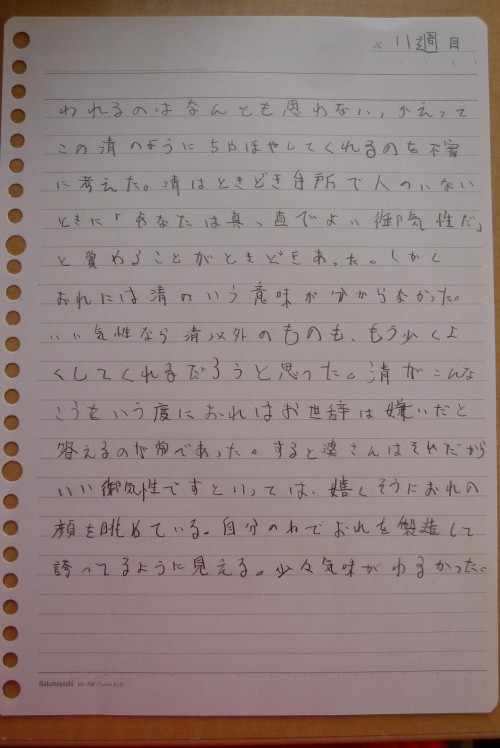 × 11週目
われるのはなんとも思わない、かえって
この清のようにちやほやしてくれるのを不審
に考えた。清はときどき台所で人のいない
ときに「あなたは真っ直でよい御気性だ」
と賞めることがときどきあった。しかし
おれには清のいう意味が分からなかった。
いい気性なら清以外のものも、もう少しよ
くしてくれるだろうと思った。清がこんな
こうをいう度におれはお世辞は嫌いだと
答えるのが常であった。すると婆さんはそれだから
いい御気性ですといっては、嬉しそうにおれの
顔を眺めている。自分の力でおれを製造して
誇ってるように見える。少々気味がわるかった。
Nakabayashi